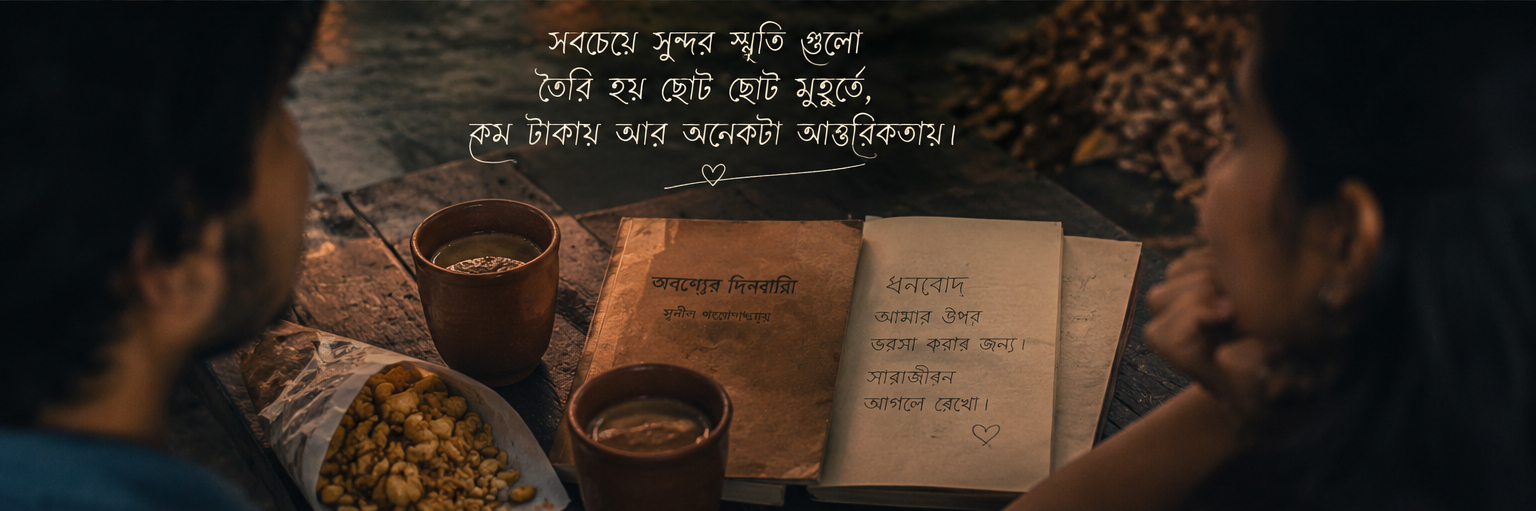 সবচেয়ে সুন্দর স্মৃতি গুলো
তৈরি হয় ছোট ছোট মুহূর্তে,
কম টাকায় আর অনেকটা আন্তরিকতায়।
দিনবারি
সুনীল
ধনবোদ
আমার উপর
ভরসা করার জন্য।
সারাজীবন
আগলে রেখো।